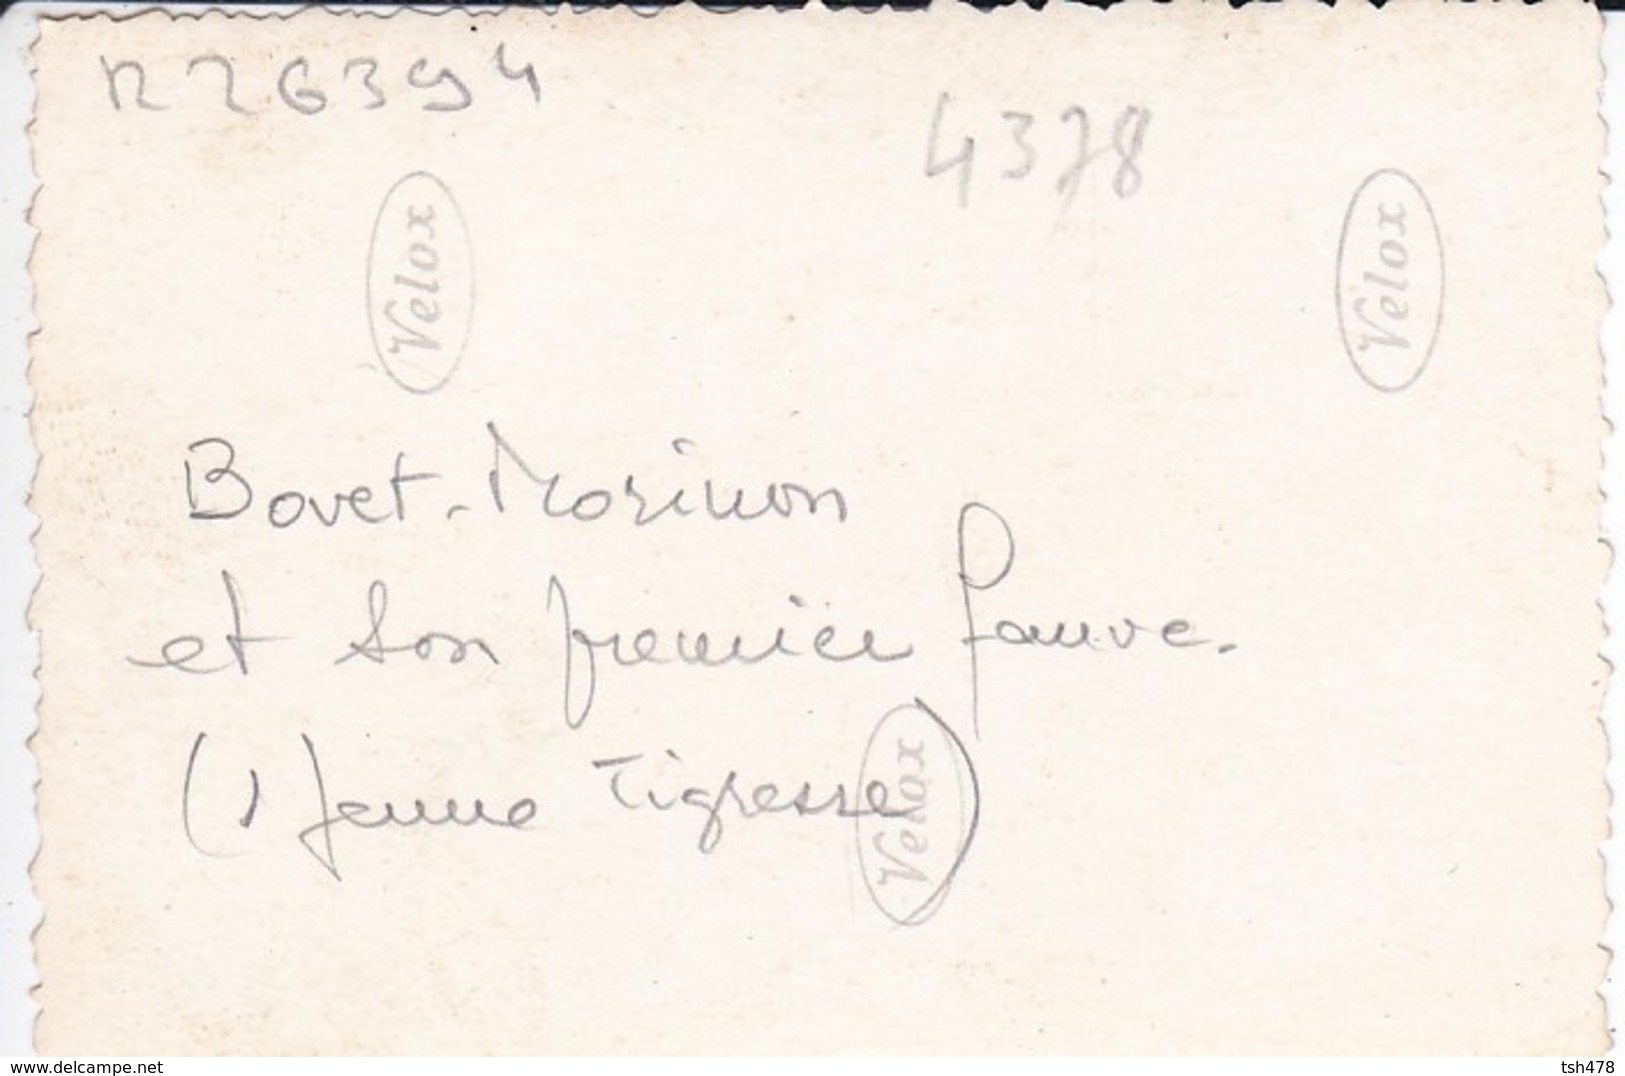 R26394
4378
Velox
Velox
Bovet-Morinon
et son premier fauve.
(1 Jeune Tigresse)
Velox
www.delcampe.net
tsh478